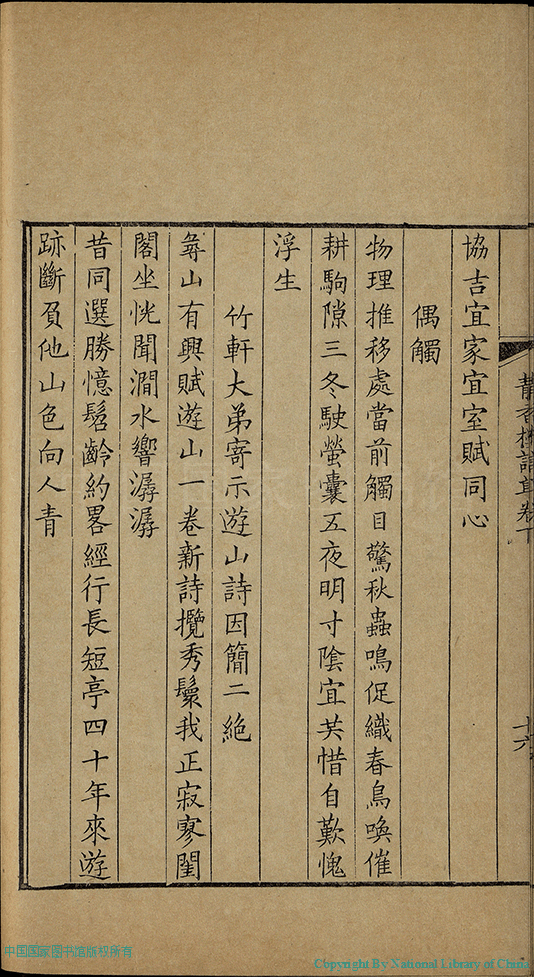 協吉宜家宜室賦同心
偶觸
物理推移處當前觸目驚秋蟲鳴促織春鳥喚催
耕駒隙三冬駛螢囊五夜明寸陰宜共惜自歎愧
浮生
竹軒大弟寄示遊山詩因簡二絶
尋山有興賦遊山一卷新詩攬秀鬟我正寂寥閨
閣坐恍聞澗水響潺潺
昔同選勝憶髫齡約畧經行長短亭四十年來遊
跡斷負他山色向人青
十六
中国国家图书馆版权所有
Copyright By National Library of China